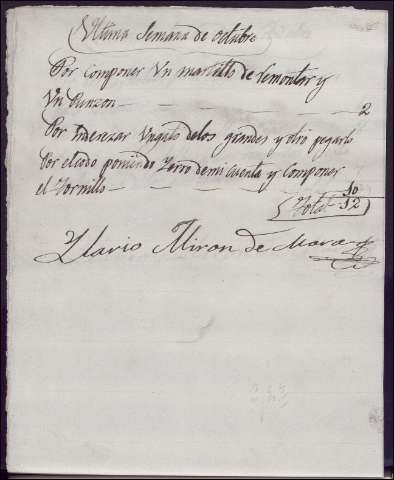 Ultima Semana de octubre
Por Componer Un martillo de Remontar y
Un Punzon — — — — 2
Por Inderezar Un gato delos grandes y otro pegarlo
Por elcodo poniendo Zerro demi Cuenta y Componer
el Tornillo — — — — 10
Total 12
Ylario Miron de Mora